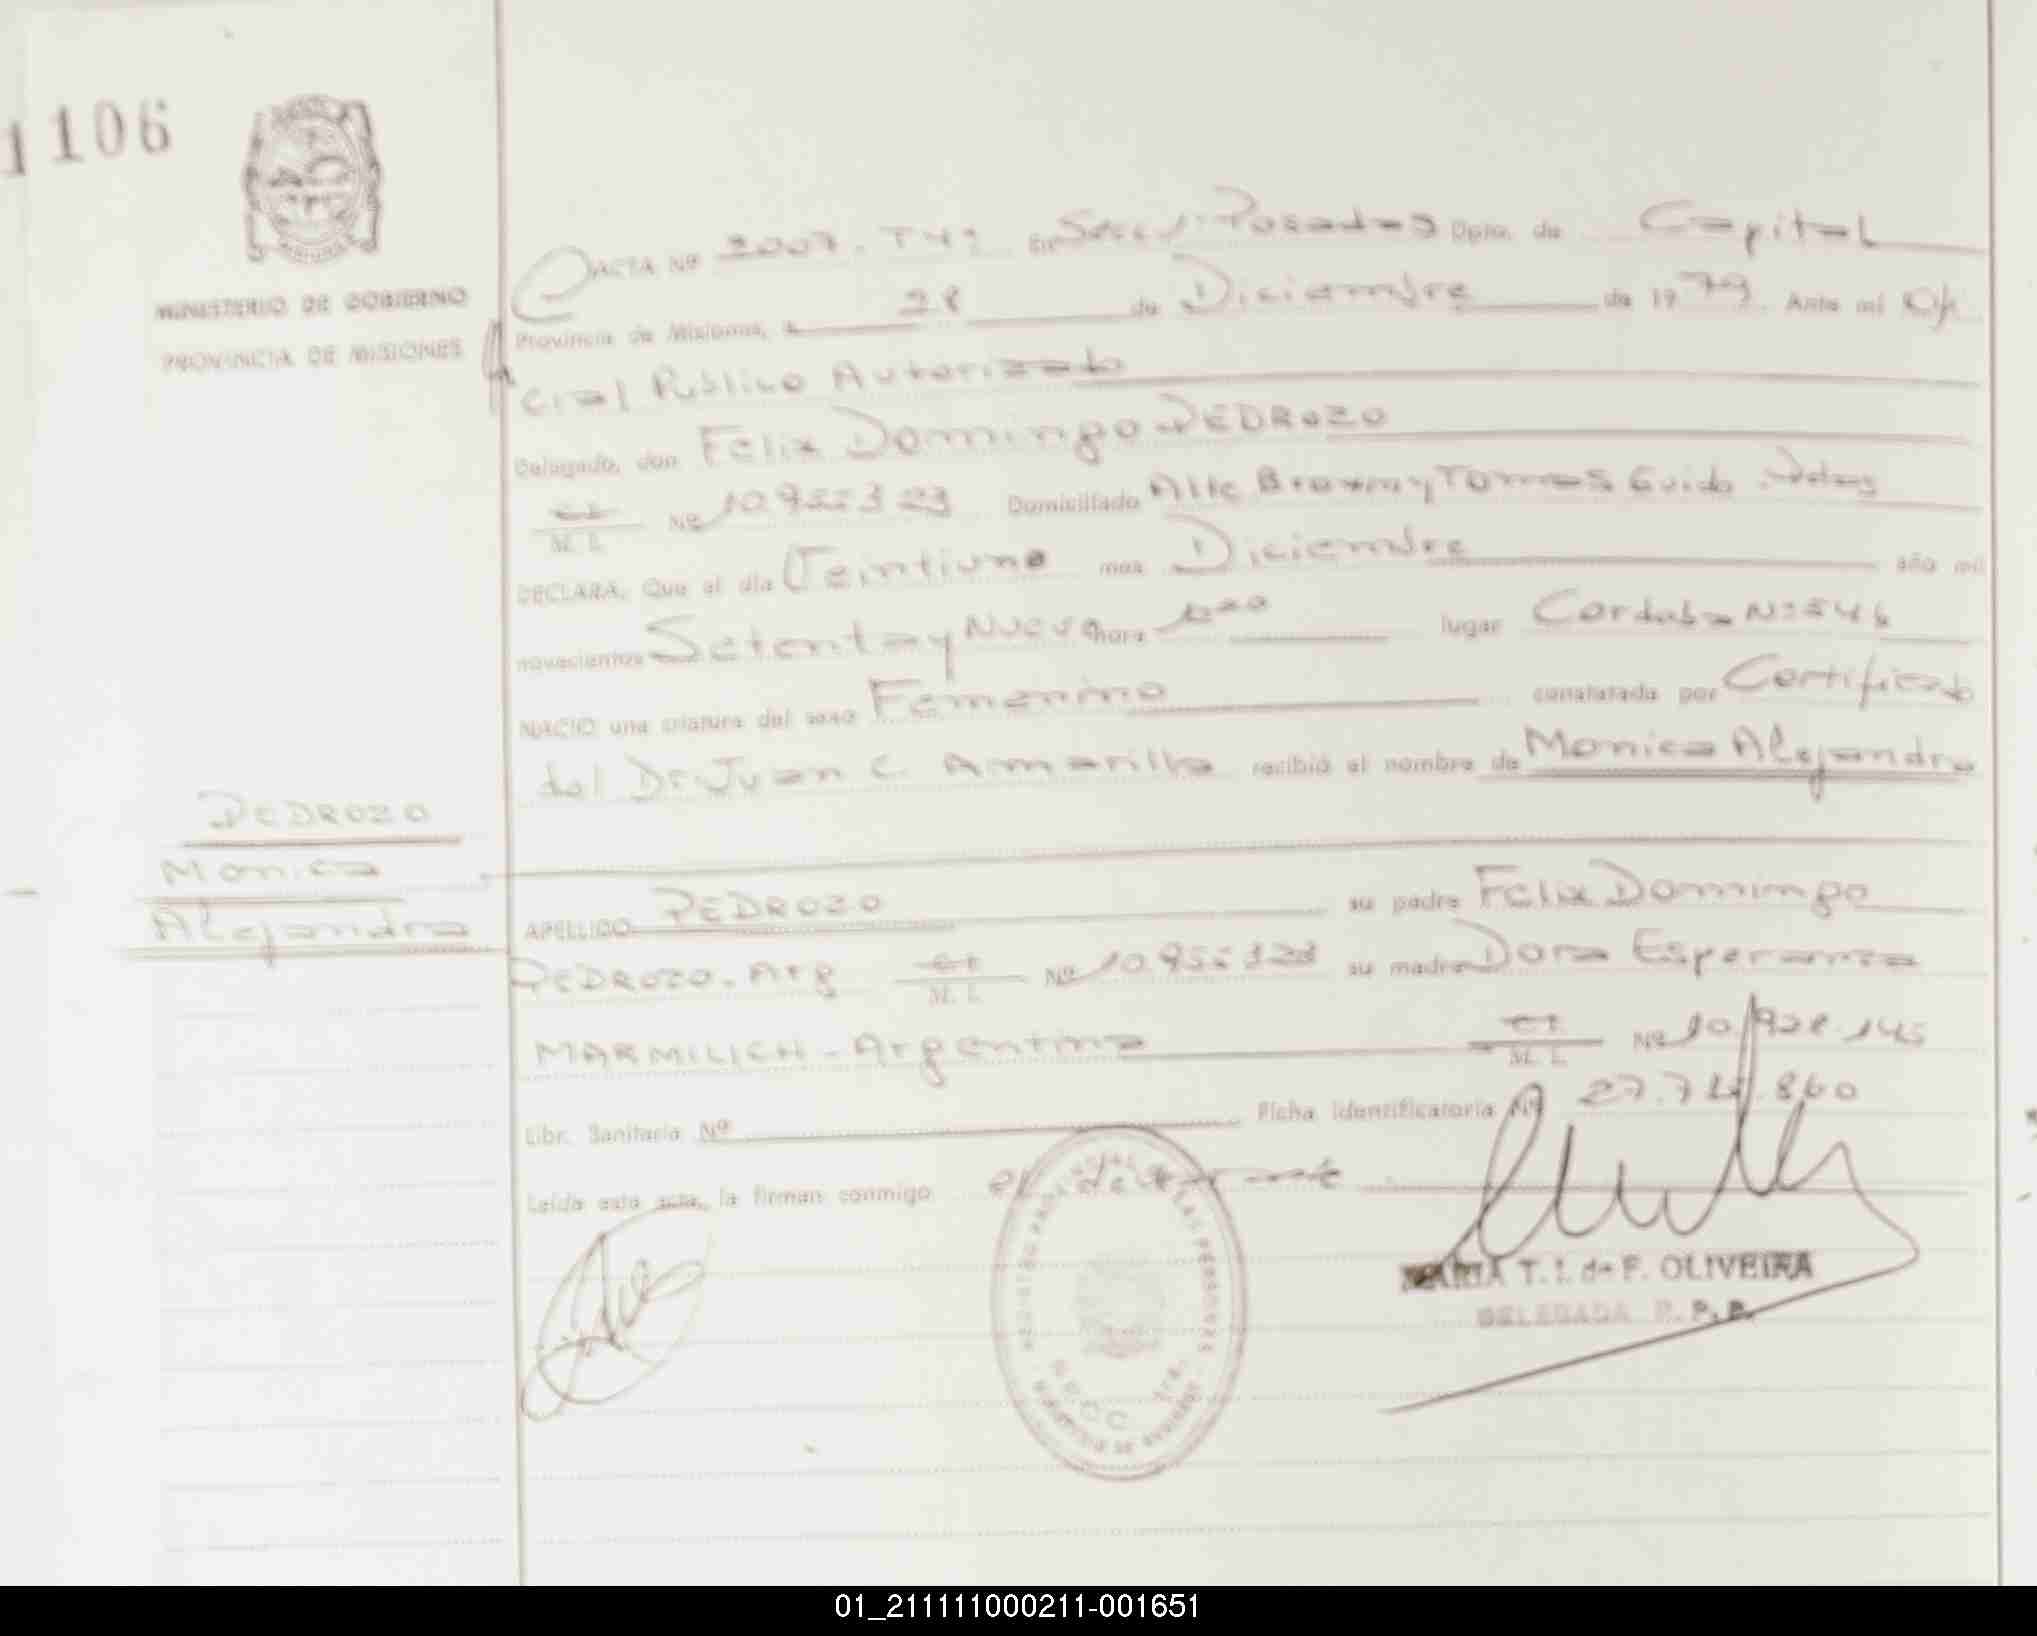 1106
MINISTERIO DE GOBIERNO
PROVINCIA DE MISIONES
ACTA Nº 2007. T4º En Secc 1º Posadas Dpto. de Capital
Provincia de Misiones, a 28 de Diciembre de 1979. Ante mí Ofi
cial Público Autorizado
Delegado, don Felix Domingo PEDROZO
M. I. Nº Domiciliado Alte Brown y Tomas Guido
DECLARA: Que el día Veintiuno mes Diciembre año mil
novecientos Setenta y Nueve hora lugar Cordoba Nº 546
NACIO una criatura del sexo Femenino constatada por Certificado
del Dr. Juan C. Amarilla recibió el nombre de Monica Alejandra
PEDROZO
Monica
Alejandra
APELLIDO PEDROZO su padre Felix Domingo
PEDROZO - Arg M. I. Nº su madre Dora Esperanza
MARMILICH - Argentina M. I. Nº 10.928.145
Libr. Sanitaria Nº Ficha identificatoria Nº
Leída esta acta, la firman conmigo el declarante
REGISTRO PROVINCIAL DE LAS PERSONAS
MINISTERIO DE GOBIERNO
MARIA T. I. de F. OLIVEIRA
DELEGADA R. P. P.
01_211111000211-001651